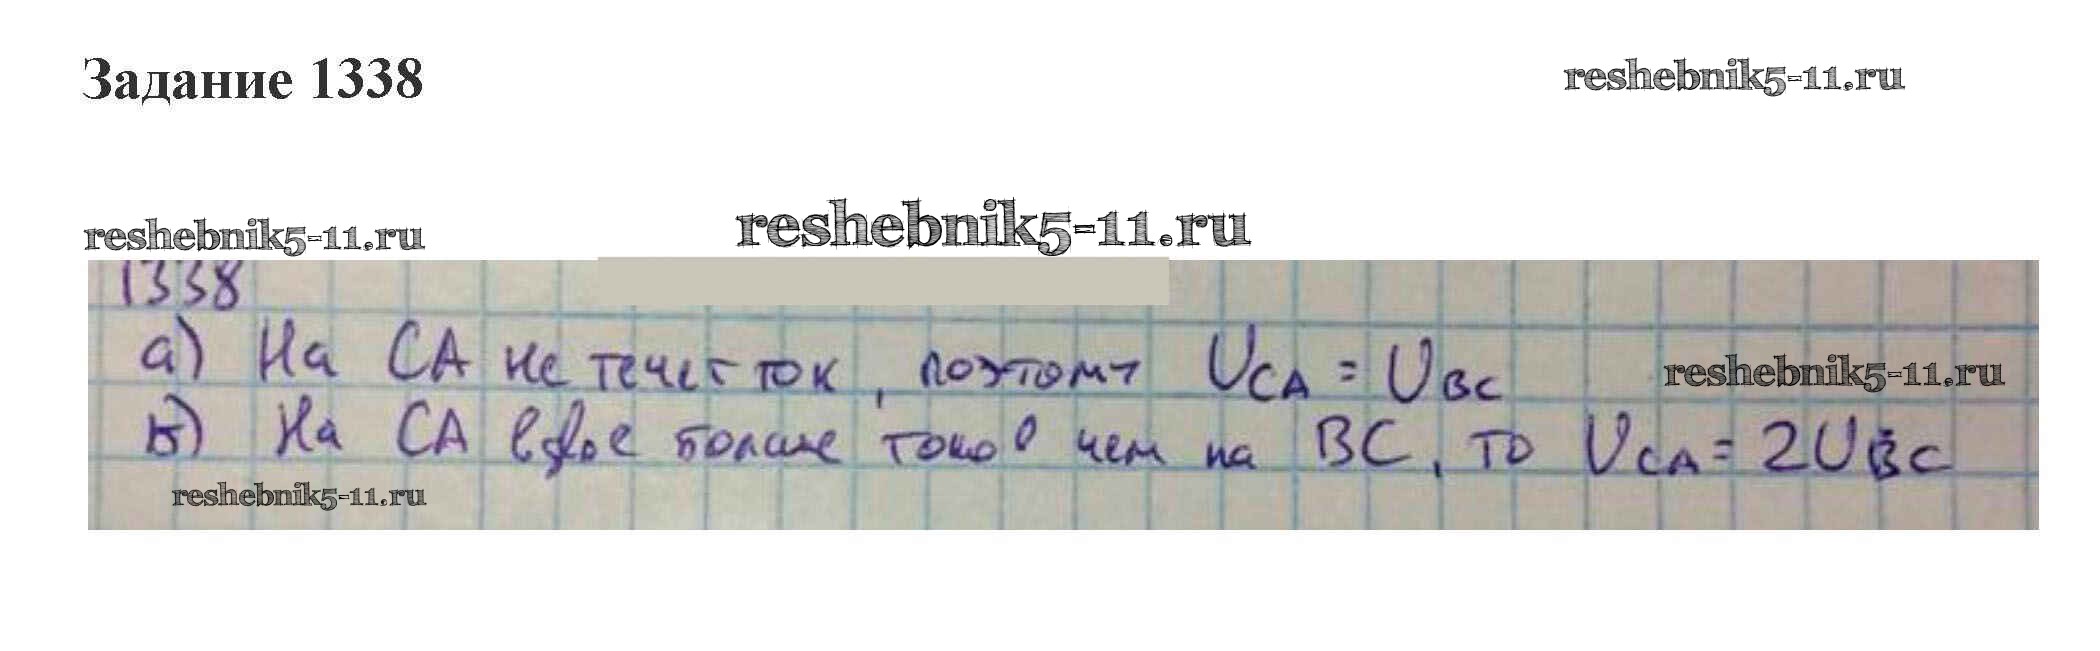 Задание 1338
reshebnik5-11.ru
reshebnik5-11.ru
reshebnik5-11.ru
1338
а) На СА не течет ток, поэтому U_CA = U_BC
reshebnik5-11.ru
б) На СА вдвое больше токов чем на ВС, то U_CA = 2U_BC
reshebnik5-11.ru